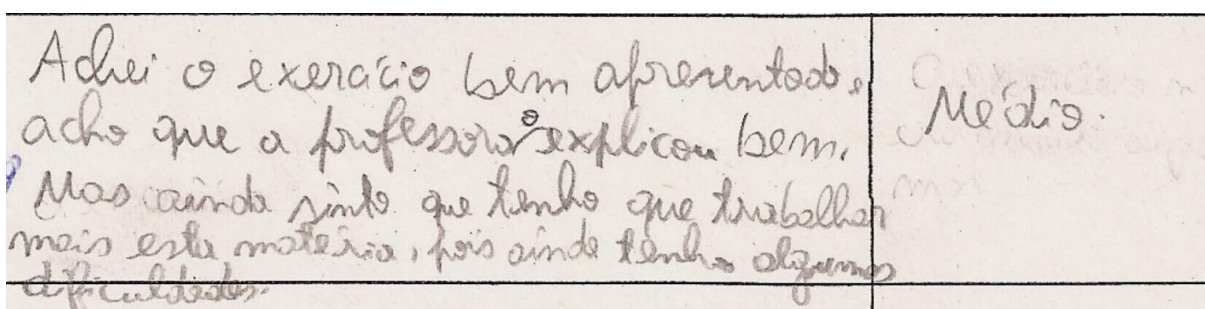 Achei o exercício bem apresentado, e
acho que a professora o explicou bem.
Mas ainda sinto que tenho que trabalhar
mais esta matéria, pois ainda tenho algumas
dificuldades.
Médio.